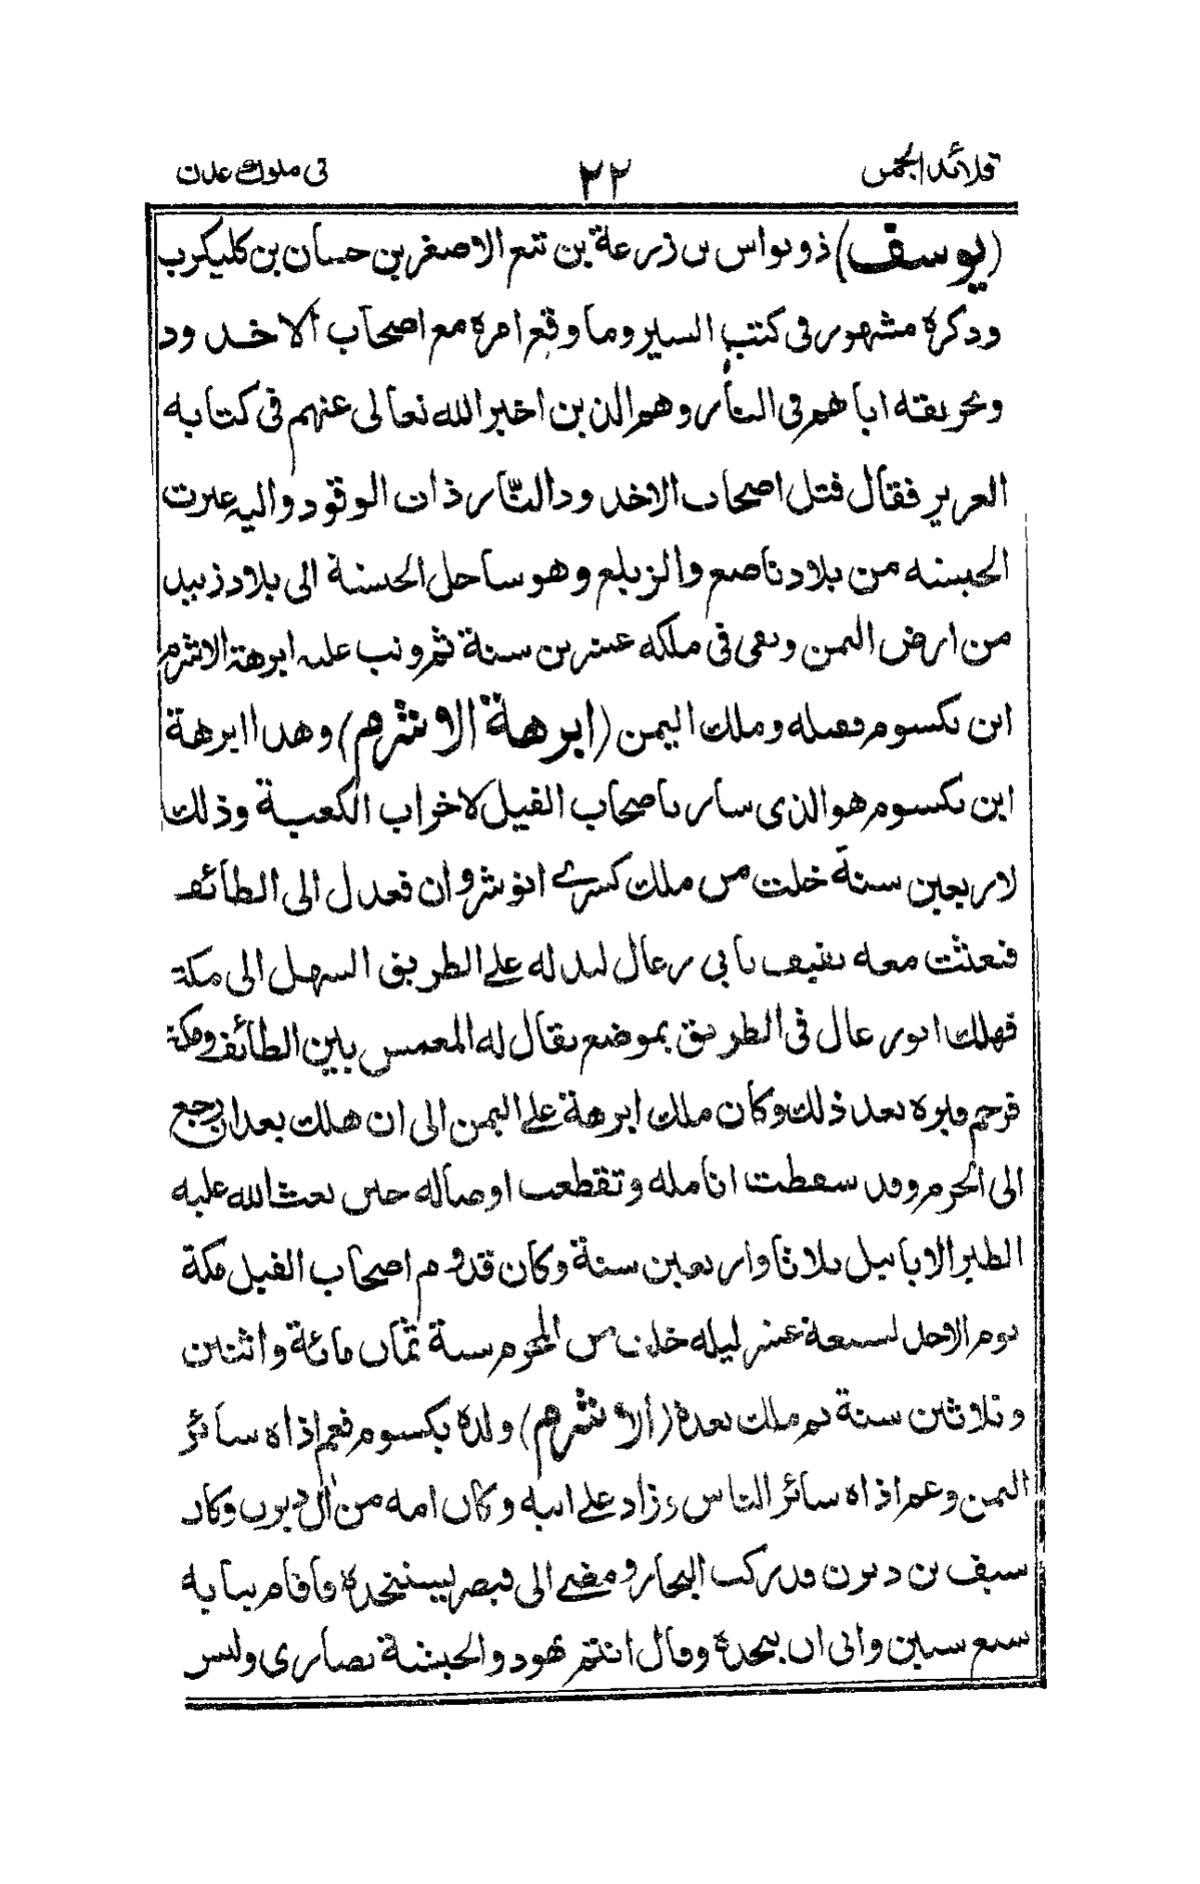 قلائد الجمن ٢٢ فى ملوك عدن
(يوسف) ذو نواس بن زرعة بن تبع الاصغر بن حسان بن كليكرب
وذكره مشهور فى كتب السير وما وقع امره مع اصحاب الاخدود
وتحريقه اياهم فى النار وهم الذين اخبر الله تعالى عنهم فى كتابه
العزيز فقال قتل اصحاب الاخدود النّار ذات الوقود واليه عبرت
الحبشه من بلاد ناصع والزيلع وهو ساحل الحبشة الى بلاد زبيد
من ارض اليمن وبقى فى ملكه عشرين سنة ثم وثب عليه ابرهة الاشرم
ابن يكسوم فقتله وملك اليمن (ابرهة الاشرم) وهذا ابرهة
ابن يكسوم هو الذى سار باصحاب الفيل لاخراب الكعبة وذلك
لاربعين سنة خلت من ملك كسرے انوشروان فعدل الى الطائف
فبعثت معه ثقيف بابى رعال ليدله على الطريق السهل الى مكة
فهلك ابو رعال فى الطريق بموضع يقال له المغمس بين الطائف ومكة
فرجم قبره بعد ذلك وكان ملك ابرهة على اليمن الى ان هلك بعد ان رجع
الى الحرم وقد سقطت انامله وتقطعت اوصاله حين بعث الله عليه
الطير الابابيل ثلاثا واربعين سنة وكان قدوم اصحاب الفيل مكة
يوم الاحد لسبعة عشر ليله خلت من المحرم سنة ثمان مائة واثنين
وثلاثين سنة ثم ملك بعده (الاشرم) ولده يكسوم فعم اذاه سائر
اليمن وعم اذاه سائر الناس وزاد على ابيه وكان امه من ال ذيزن وكان
سيف بن ذيزن قد ركب البحار ومضے الى قيصر يستنجده فاقام ببابه
سبع سنين وابى ان ينجده وقال انتم يهود والحبشة نصارى وليس